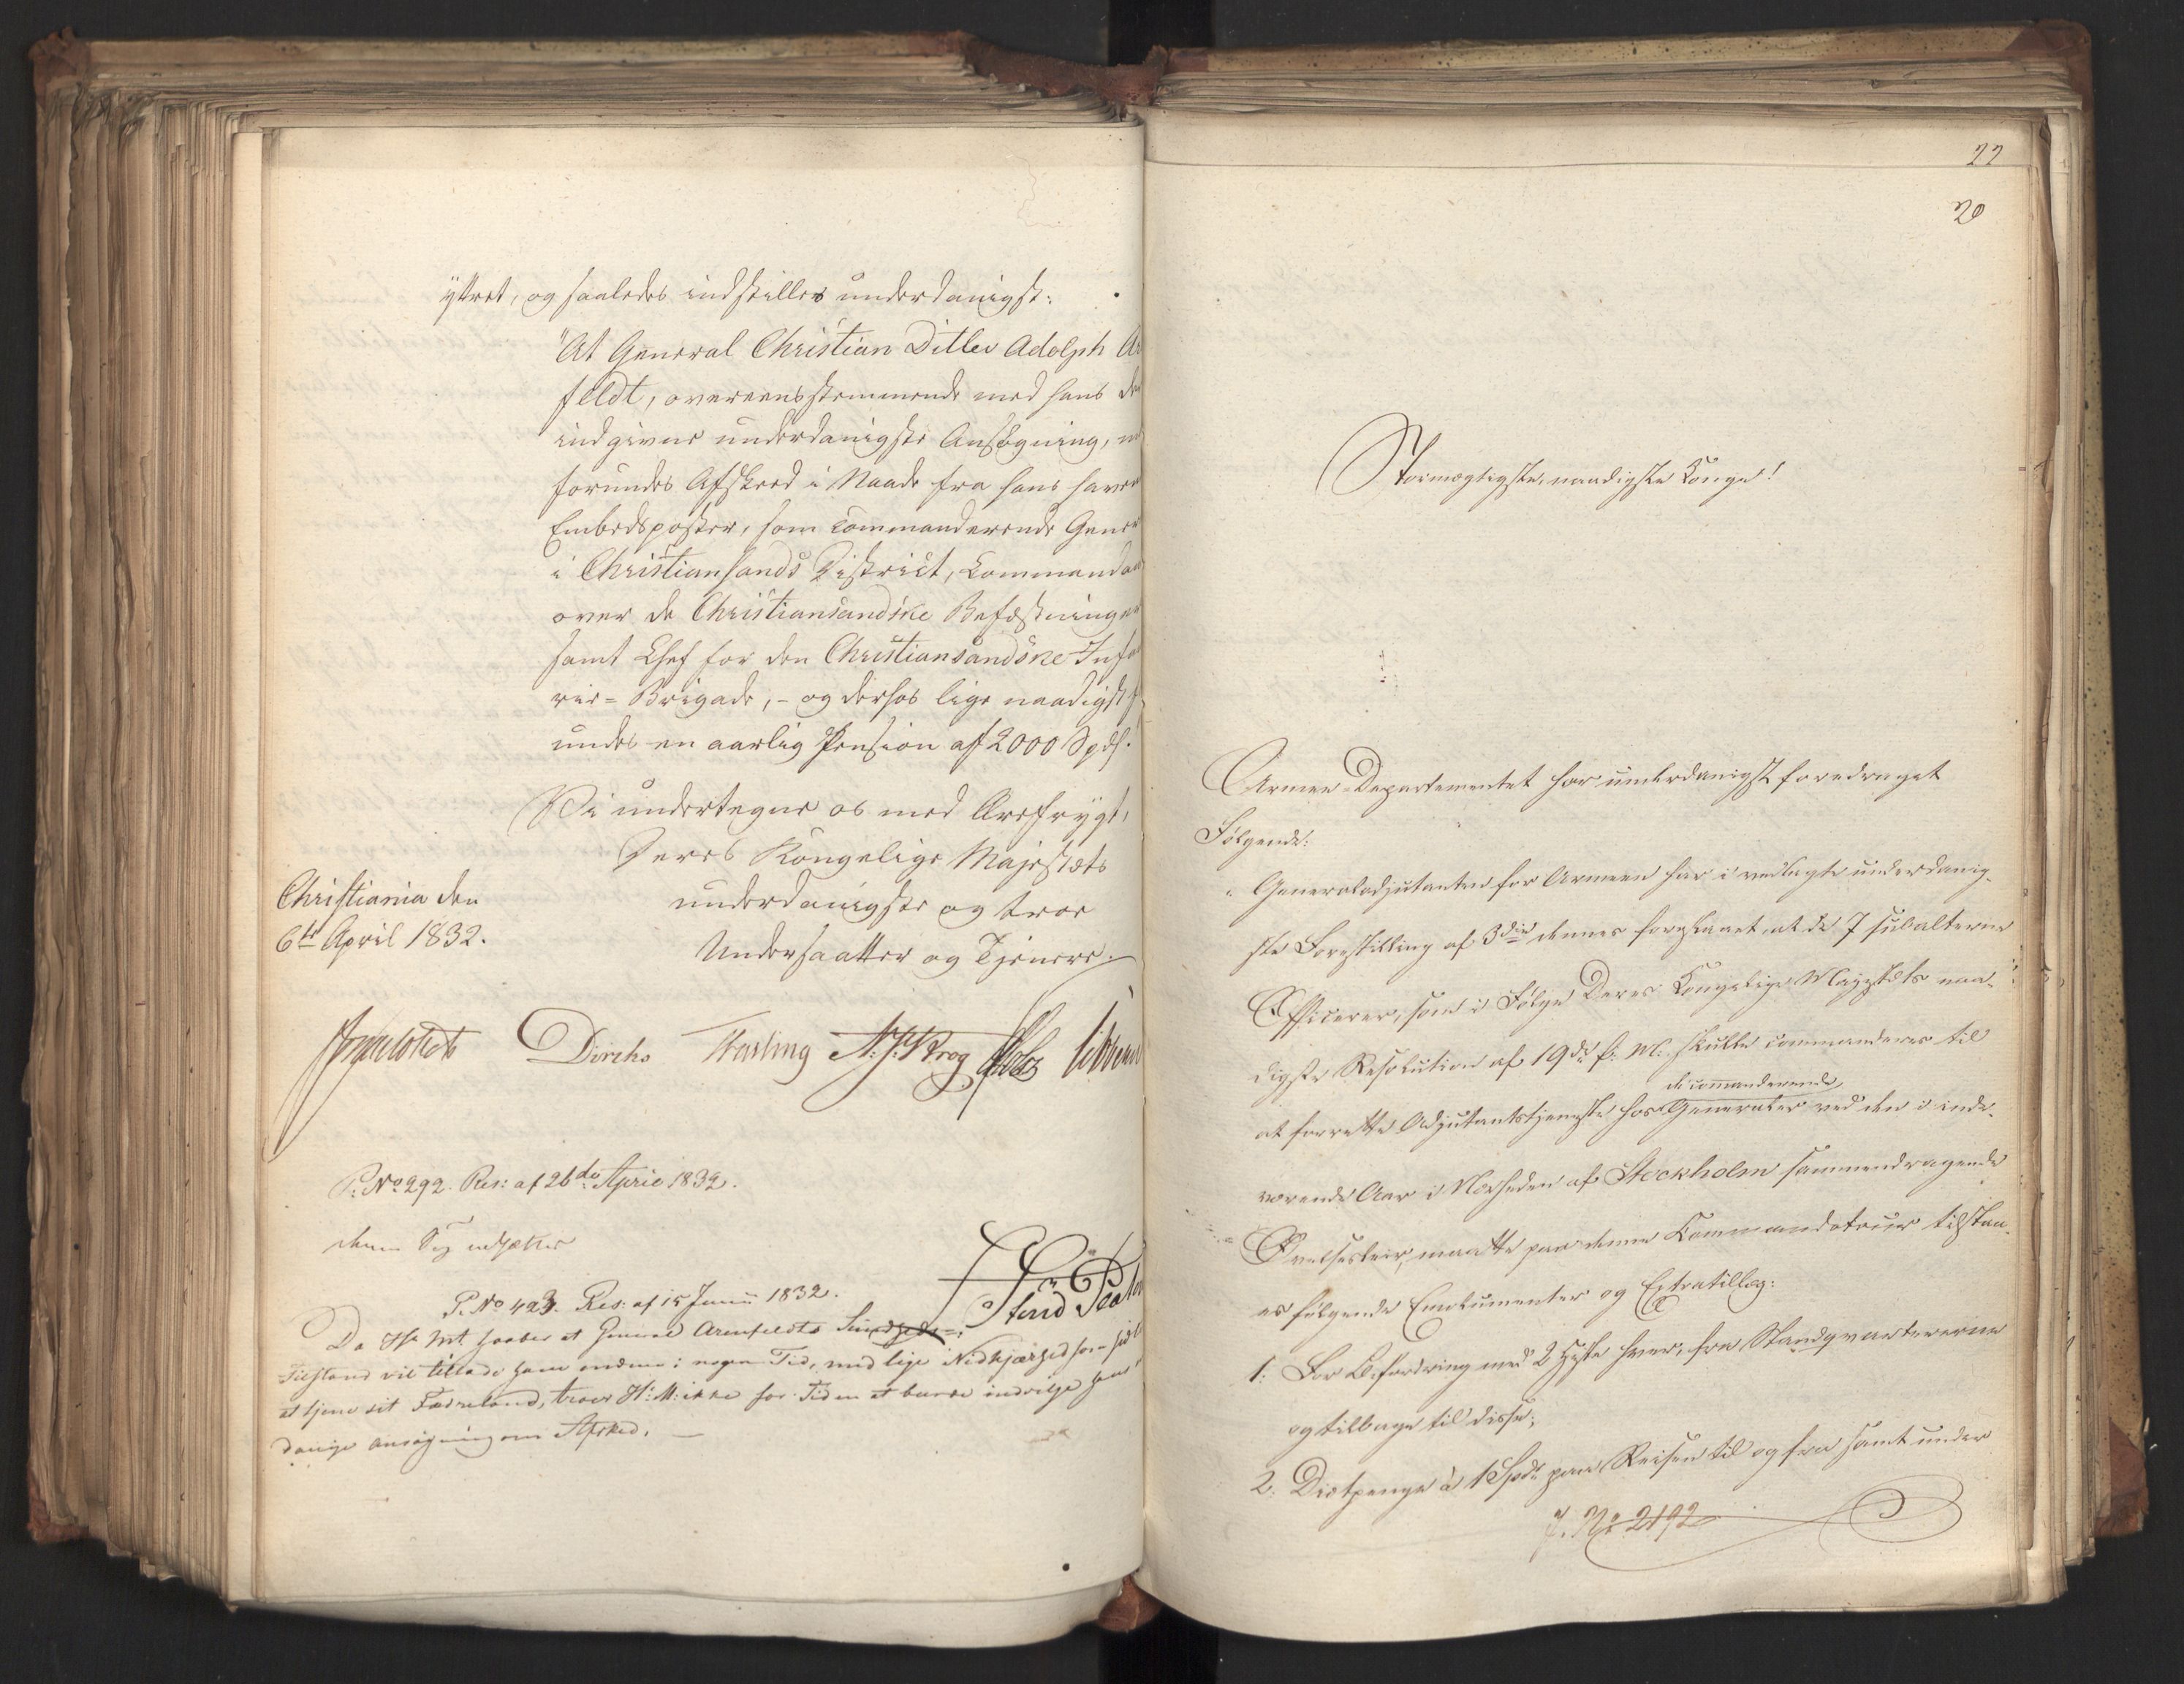 yttret, og saaledes indstilles underdanigst:
"At General Christian Ditlev Adolph Ar
feldt, overeensstemmende med hans de
indgivne underdanigste Ansøgning, 
forundes Afskeed i Naade fra hans havende
Embedsposter, som Commanderende Gener
i Christiansands District, Commandan
over de Christiansandske Befæstninger
samt Chef for den Christiansandske Infa
rie-Brigade, - og derhos lige naadigst
undes en aarlig Pension af 2000 Spdlr.
Vi undertegne os med Ærefrygt,
Deres Kongelige Majestæts
underdanigste og troe
Undersaatter og Tjenere.
Christiania den
6te April 1832.
Diriks N. J. Krog
P: No 292. Res: af 26de April 1832.
denne Sag udsættes
P. No 423. Res: af 15 Junii 1832.
Da Hs Mt haaber at General Arenfeldts
Tilstand vil tillade ham endnu i nogen Tid, med lige Nidkjærhed som
at tjene sit Fædreland, troer H: M: ikke for Tiden at burde indvilge hans
danige ansøgning om Afsked. —
22
20
Stormægtigste, naadigste Konge!
Armee-Departementet har underdanigst foredraget
Følgende:
"Generaladjutanten for Armeen har i vedlagte underdanig-
ste Forestilling af 3die dennes foreslaaet, at de 7 subalterne
Officerer, som i Følge Deres Kongelige Majestæts naa-
digste Resolution af 19de f: M: skulle commanderes til
de commanderende
at forrette Adjutantstjeneste hos Generaler ved den i inde-
værende Aar i Nærheden af Stockholm sammendragende
Øvelsesleir, maatte paa denne Commandotour tilstaa-
es følgende Emolumenter og Extratillæg:
1: For Befordring med 2 Heste hver, fra Standqvartererne
og tilbage til disse;
2: Diætpenge à 1 Spdr paa Reisen til og fra samt under
J. No 2192